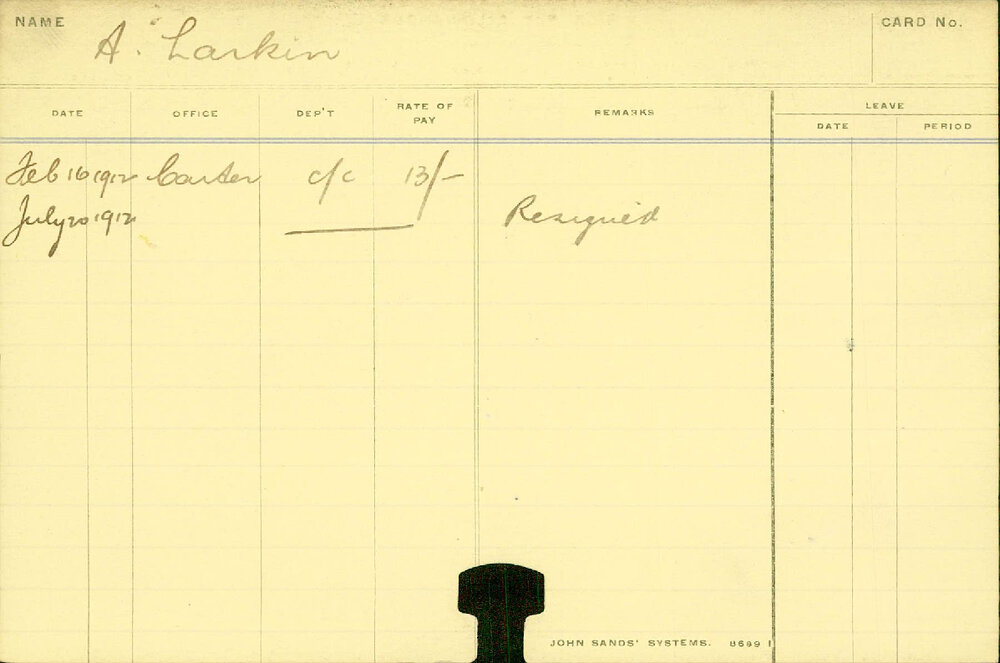 NAME A. Larkin CARD No.
DATE OFFICE DEP'T RATE OF PAY REMARKS LEAVE
DATE PERIOD
Feb 16 1912 Carter c/c 13/-
July 20 1912 Resigned
JOHN SANDS' SYSTEMS. 8699